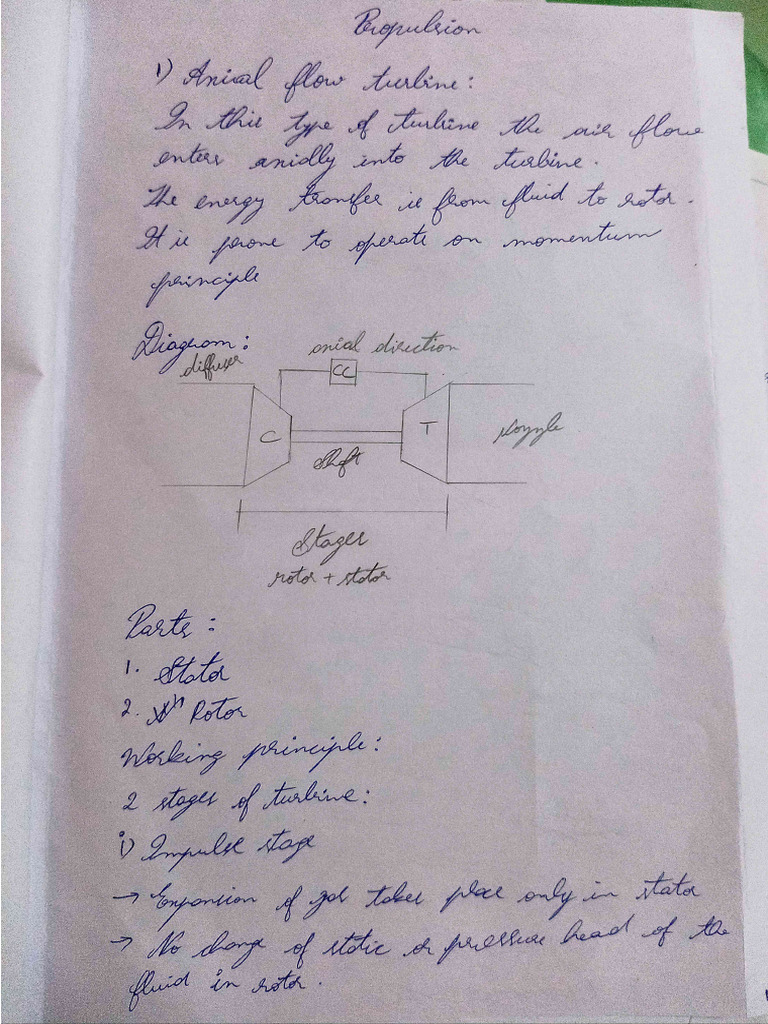 Propulsion
1) Axial flow turbine:
In this type of turbine the air flow
enters axially into the turbine.
The energy transfer is from fluid to rotor.
It is prone to operate on momentum
principle
Diagram:
axial direction
diffuser
CC
C
T
Nozzle
Shaft
Stages
rotor + stator
Parts:
1. Stator
2. Rotor
Working principle:
2 stages of turbine:
i) Impulse stage
→ Expansion of gas takes place only in stator
→ No change of static or pressure head of the
fluid in rotor.